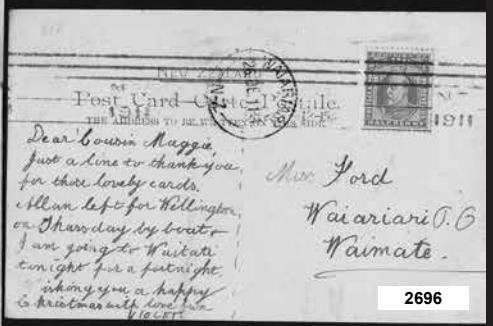 WAIMATE
NEW ZEALAND
Post Card Carte Postale.
THE ADDRESS TO BE WRITTEN ON THIS SIDE.
1911
1911
Dear Cousin Maggie
Just a line to thank you
for those lovely cards.
Allan left for Wellington
on Thursday by boat &
I am going to Waitati
tonight for a fortnight
wishing you a happy
Christmas with love from
VIOLET
Miss Ford
Waiariari P.O
Waimate.
2696